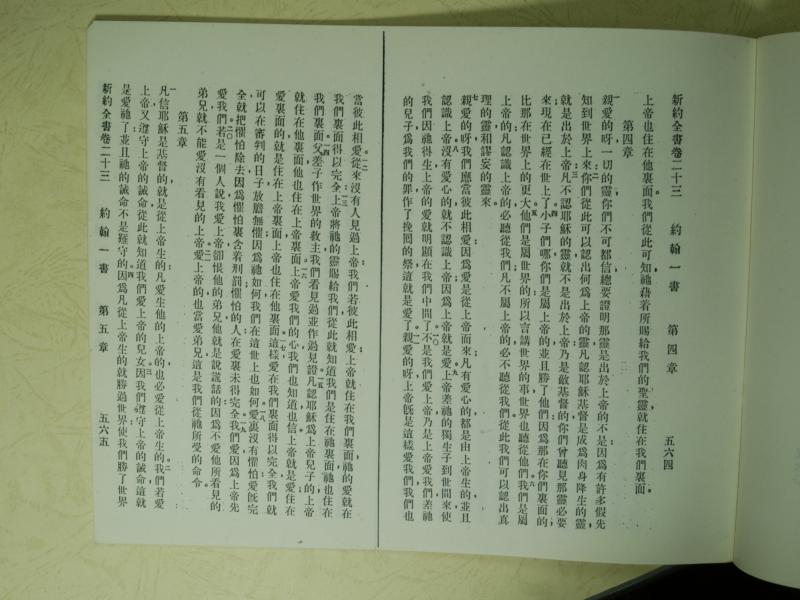 新約全書卷二十三　約翰一書　第四章　五六四
上帝也住在他裏面我們從此可知祂藉着所賜給我們的聖靈就住在我們裏面。
第四章
親愛的呀一切的靈你們不可都信總要證明那靈是出於上帝的不是因爲有許多假先
知到世界上來你們從此可以認出何爲上帝的靈凡認耶穌基督是成爲肉身降生的靈
就是出於上帝凡不認耶穌的靈就不是出於上帝乃是敵基督的你們曾聽見那靈必要
來現在已經在世上了小子們哪你們是屬上帝的並且勝了他們因爲那在你們裏面的
比那在世界上的更大他們是屬世界的所以言講世界的事世界也聽從他們我們是屬
上帝的凡認識上帝的必聽從我們凡不屬上帝的必不聽從我們從此我們可以認出真
理的靈和謬妄的靈來
親愛的呀我們應當彼此相愛因爲愛是從上帝而來凡有愛心的都是由上帝生的並且
認識上帝沒有愛心的就不認識上帝因爲上帝就是愛上帝差祂的獨生子到世間來使
我們因祂得生上帝的愛就明顯在我們中間了不是我們愛上帝乃是上帝愛我們差祂
的兒子爲我們的罪作了挽囘的祭這就是愛了親愛的呀上帝旣是這樣愛我們我們也
當彼此相愛從來沒有人見過上帝我們若彼此相愛上帝就住在我們裏面祂的愛就在
我們裏面得以完全上帝將祂的靈賜給我們從此就知道我們是住在祂裏面祂也住在
我們裏面父差子作世界的救主我們看見過並作過見證凡認耶穌爲上帝兒子的上帝
就住在他裏面他也住在上帝裏面上帝愛我們的心我們也知道也信上帝就是愛住在
愛裏面的就是住在上帝裏面上帝也住在他裏面這樣愛在我們裏面得以完全我們就
可以在審判的日子放膽無懼因爲祂如何我們在這世上也如何愛裏沒有懼怕愛旣完
全就把懼怕除去因爲懼怕裏含着刑罰懼怕的人在愛裏未得完全我們愛因爲上帝先
愛我們若是一個人說我愛上帝卻恨他的弟兄他就是說謊話的因爲不愛他所看見的
弟兄就不能愛沒有看見的上帝愛上帝的也當愛弟兄這是我們從祂所受的命令。
第五章
凡信耶穌是基督的就是從上帝生的凡愛生他的上帝的也必愛從上帝生的我們若愛
上帝又遵守上帝的誡命從此就知道我們愛上帝的兒女因我們遵守上帝的誡命這就
是愛祂了並且祂的誡命不是難守的因爲凡從上帝生的就勝過世界使我們勝了世界
新約全書卷二十三　約翰一書　第五章　五六五